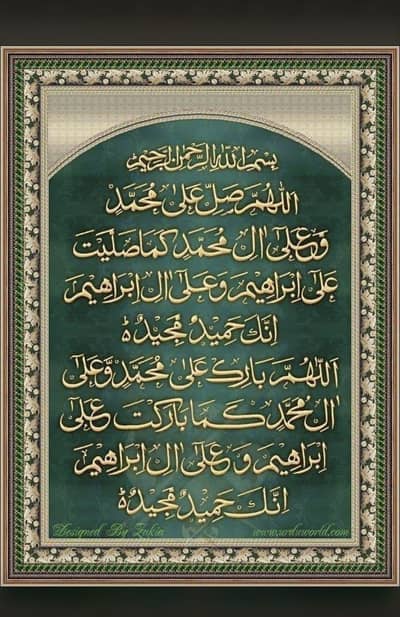 بسم الله الرحمن الرحيم
اَللّٰهُمَّ صَلِّ عَلٰى مُحَمَّدٍ
وَّعَلٰٓى اٰلِ مُحَمَّدٍ كَمَا صَلَّيْتَ
عَلٰٓى اِبْرَاهِيْمَ وَعَلٰٓى اٰلِ اِبْرَاهِيْمَ
اِنَّكَ حَمِيْدٌ مَّجِيْدٌ ؕ
اَللّٰهُمَّ بَارِكْ عَلٰى مُحَمَّدٍ وَّعَلٰٓى
اٰلِ مُحَمَّدٍ كَمَا بَارَكْتَ عَلٰٓى
اِبْرَاهِيْمَ وَعَلٰٓى اٰلِ اِبْرَاهِيْمَ
اِنَّكَ حَمِيْدٌ مَّجِيْدٌ ؕ
Designed By Zakia